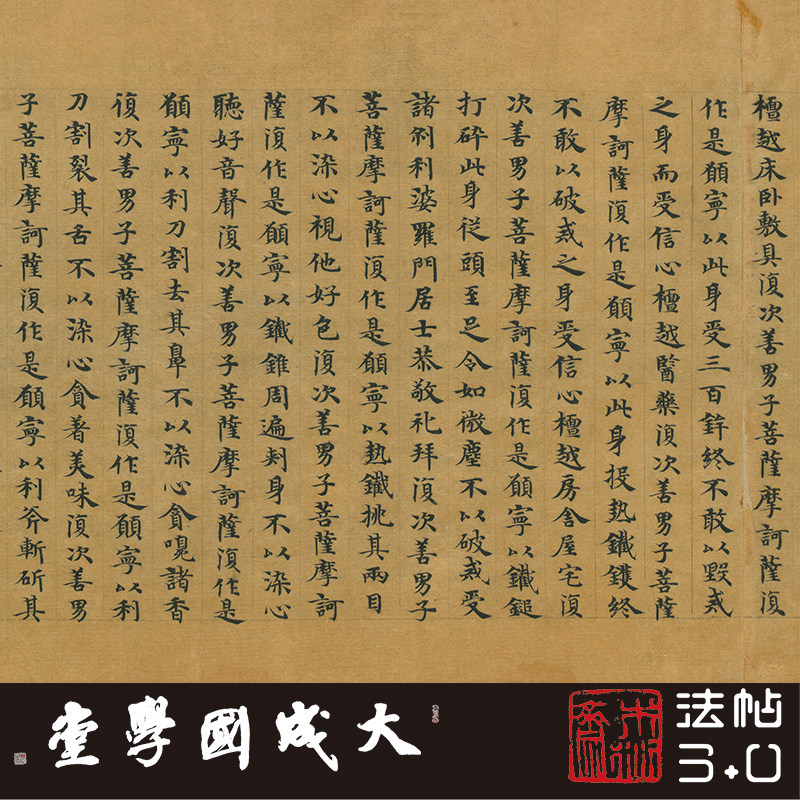 檀越床卧敷具復次善男子菩薩摩訶薩復
作是願寧以此身受三百鉾終不敢以毀戒
之身而受信心檀越醫藥復次善男子菩薩
摩訶薩復作是願寧以此身投熱鐵鑊終
不敢以破戒之身受信心檀越房舍屋宅復
次善男子菩薩摩訶薩復作是願寧以鐵鎚
打碎此身従頭至足令如微塵不以破戒受
諸刹利婆羅門居士恭敬礼拜復次善男子
菩薩摩訶薩復作是願寧以熱鐵挑其兩目
不以染心視他好色復次善男子菩薩摩訶
薩復作是願寧以鐵錐周遍刾身不以染心
聽好音聲復次善男子菩薩摩訶薩復作是
願寧以利刀割去其鼻不以染心貪嗅諸香
復次善男子菩薩摩訶薩復作是願寧以利
刀割裂其舌不以染心貪著美味復次善男
子菩薩摩訶薩復作是願寧以利斧斬斫其
大成國學堂
法帖
3.0